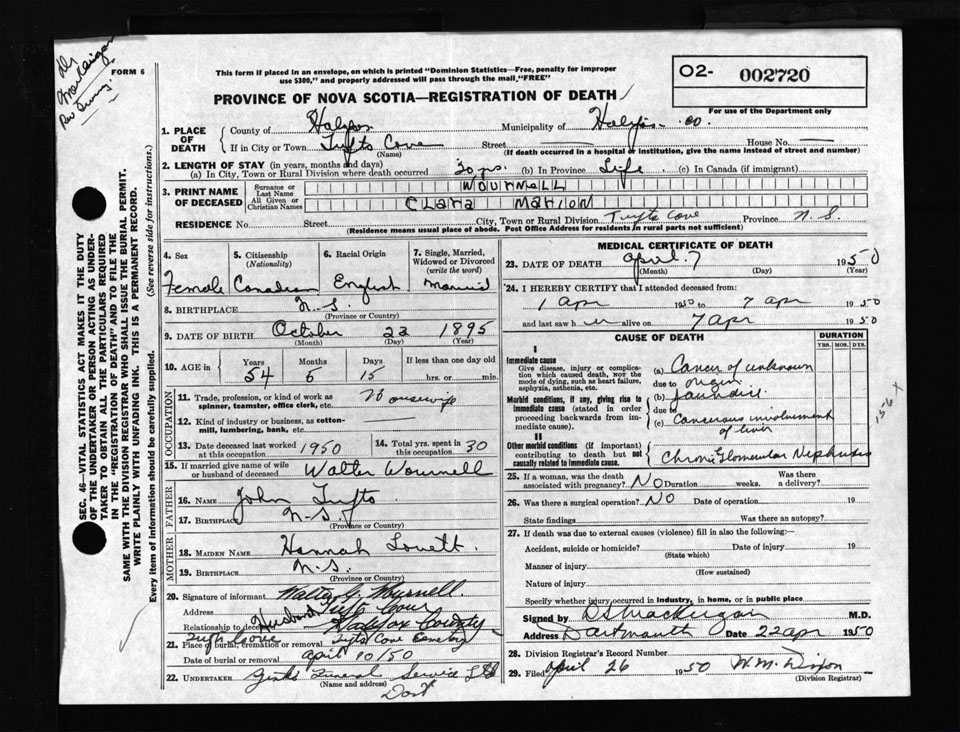 Dr
Rev
FORM 6
This form if placed in an envelope, on which is printed "Dominion Statistics—Free, penalty for improper
use $300," and properly addressed will pass through the mail, "FREE"
O2- 002720
For use of the Department only
PROVINCE OF NOVA SCOTIA—REGISTRATION OF DEATH
1. PLACE OF DEATH { County of Halifax Municipality of Halifax co.
If in City or Town Tufts Cove Street House No.
(Name) (If death occurred in a hospital or institution, give the name instead of street and number)
2. LENGTH OF STAY (in years, months and days)
(a) In City, Town or Rural Division where death occurred 30 yrs. (b) In Province Life (c) In Canada (if immigrant)
3. PRINT NAME OF DECEASED { Surname or Last Name WOURNELL
All Given or Christian Names CLARA MARION
RESIDENCE No. Street City, Town or Rural Division Tufts Cove Province N.S.
(Residence means usual place of abode. Post Office Address for residents in rural parts not sufficient)
4. Sex 5. Citizenship (Nationality) 6. Racial Origin 7. Single, Married, Widowed or Divorced (write the word)
Female Canadian English Married
8. BIRTHPLACE N.S.
(Province or Country)
9. DATE OF BIRTH October 23 1895
(Month) (Day) (Year)
10. AGE in { Years Months Days If less than one day old
54 5 15 hrs. or min.
OCCUPATION
11. Trade, profession, or kind of work as spinner, teamster, office clerk, etc. Housewife
12. Kind of industry or business, as cotton-mill, lumbering, bank, etc.
13. Date deceased last worked at this occupation 1950 14. Total yrs. spent in this occupation 30
15. If married give name of wife or husband of deceased Walter Wournell
FATHER
16. NAME John Tufts
17. BIRTHPLACE N.S.
(Province or Country)
MOTHER
18. MAIDEN NAME Hannah Lovett.
19. BIRTHPLACE N.S.
(Province or Country)
20. Signature of informant Walter J. Wournell
Address Tufts Cove
Relationship to deceased Husband Halifax County
Tufts Cove
21. Place of burial, cremation or removal Tufts Cove Cemetery
Date of burial or removal April 10/50
22. UNDERTAKER Funeral Service Ltd
(Name and address) Dart
MEDICAL CERTIFICATE OF DEATH
23. DATE OF DEATH April 7 1950
(Month) (Day) (Year)
24. I HEREBY CERTIFY that I attended deceased from:
1 Apr 1950 to 7 Apr 1950
and last saw h er alive on 7 Apr 1950
CAUSE OF DEATH DURATION
YRS. MOS. DYS.
I
Immediate cause
Give disease, injury or complication which caused death, NOT the mode of dying, such as heart failure, asphyxia, asthenia, etc.
(a) Cancer of unknown
due to origin
Morbid conditions, if any, giving rise to immediate cause (stated in order proceeding backwards from immediate cause).
(b) Jaundice
due to
(c) Cancerous involvement
of liver
II
Other morbid conditions (if important) contributing to death but not causally related to immediate cause.
Chronic Glomerular Nephritis
156 x
25. If a woman, was the death associated with pregnancy? NO Duration weeks. Was there a delivery?
26. Was there a surgical operation? NO Date of operation 19
State findings Was there an autopsy?
27. If death was due to external causes (violence) fill in also the following:
Accident, suicide or homicide? Date of injury 19
(State which)
Manner of injury
(How sustained)
Nature of injury
Specify whether injury occurred in industry, in home, or in public place
Signed by M.D.
Address Dartmouth Date 22 Apr 1950
28. Division Registrar's Record Number
29. Filed April 26 1950 W.M. Dixon
(Division Registrar)
SEC. 46—VITAL STATISTICS ACT MAKES IT THE DUTY
OF THE UNDERTAKER OR PERSON ACTING AS UNDER-
TAKER TO OBTAIN ALL THE PARTICULARS REQUIRED
IN THE "REGISTRATION OF DEATH" AND TO FILE THE
SAME WITH THE DIVISION REGISTRAR WHO SHALL ISSUE THE BURIAL PERMIT.
WRITE PLAINLY WITH UNFADING INK. THIS IS A PERMANENT RECORD.
Every item of information should be carefully supplied. (See reverse side for instructions.)